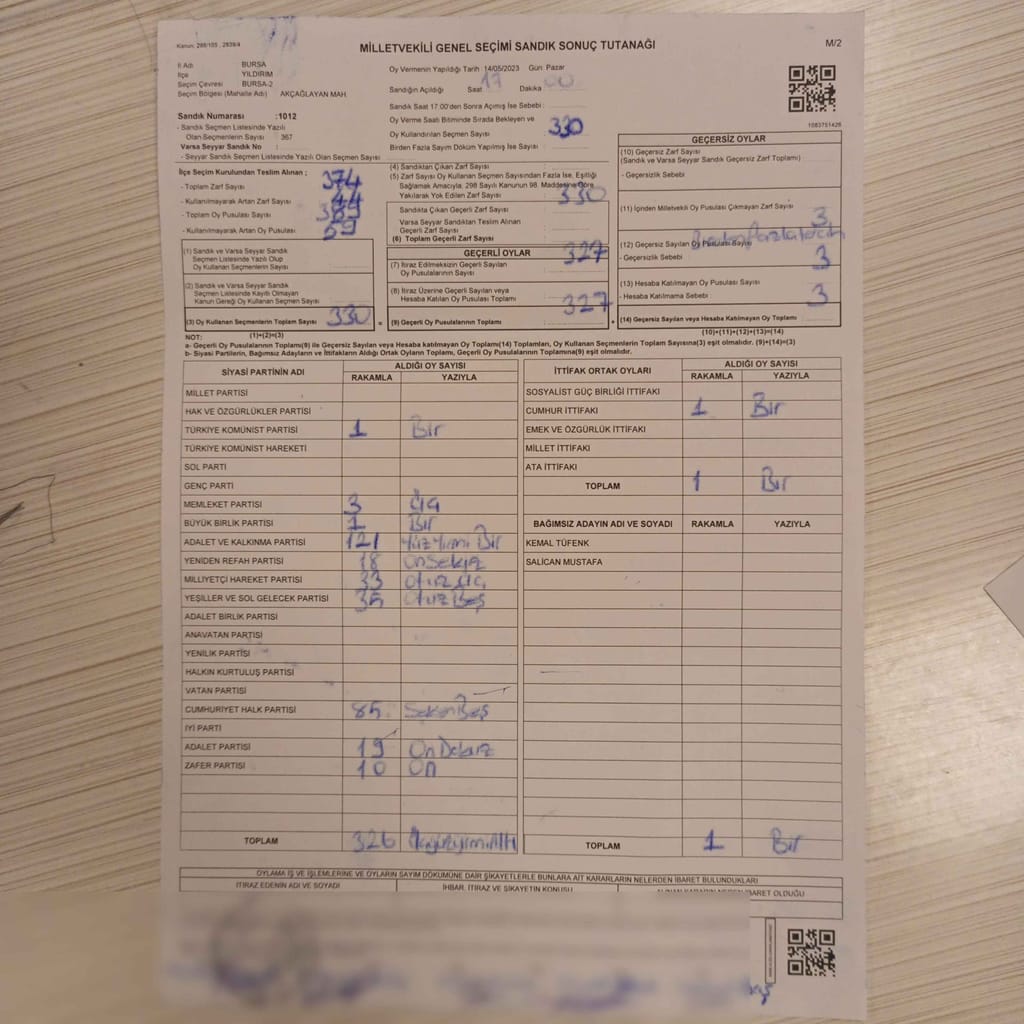 Kanun: 298/105 , 2839/4
MİLLETVEKİLİ GENEL SEÇİMİ SANDIK SONUÇ TUTANAĞI
M/2
İl Adı BURSA
İlçe YILDIRIM
Seçim Çevresi BURSA-2
Seçim Bölgesi (Mahalle Adı) AKÇAĞLAYAN MAH.
Oy Vermenin Yapıldığı Tarih :14/05/2023 Gün: Pazar
Sandığın Açıldığı Saat 17 Dakika 00
Sandık Saat 17:00'den Sonra Açılmış İse Sebebi :
Oy Verme Saati Bitiminde Sırada Bekleyen ve
Oy Kullandırılan Seçmen Sayısı 330
Birden Fazla Sayım Döküm Yapılmış İse Sayısı :
1083751426
Sandık Numarası :1012
- Sandık Seçmen Listesinde Yazılı
Olan Seçmenlerin Sayısı 367
Varsa Seyyar Sandık No :
- Seyyar Sandık Seçmen Listesinde Yazılı Olan Seçmen Sayısı
İlçe Seçim Kurulundan Teslim Alınan ;
- Toplam Zarf Sayısı 374
- Kullanılmayarak Artan Zarf Sayısı 44
- Toplam Oy Pusulası Sayısı
- Kullanılmayarak Artan Oy Pusulası 59
(1) Sandık ve Varsa Seyyar Sandık
Seçmen Listesinde Yazılı Olup
Oy Kullanan Seçmenlerin Sayısı
(2) Sandık ve Varsa Seyyar Sandık
Seçmen Listesinde Kayıtlı Olmayan
Kanun Gereği Oy Kullanan Seçmen Sayısı
(3) Oy Kullanan Seçmenlerin Toplam Sayısı 330
(1)+(2)=(3)
(4) Sandıktan Çıkan Zarf Sayısı
(5) Zarf Sayısı Oy Kullanan Seçmen Sayısından Fazla İse, Eşitliği
Sağlamak Amacıyla, 298 Sayılı Kanunun 98. Maddesine Göre
Yakılarak Yok Edilen Zarf Sayısı : 330
Sandıkta Çıkan Geçerli Zarf Sayısı
Varsa Seyyar Sandıktan Teslim Alınan
Geçerli Zarf Sayısı
(6) Toplam Geçerli Zarf Sayısı
GEÇERLİ OYLAR 327
(7) İtiraz Edilmeksizin Geçerli Sayılan
Oy Pusulalarının Sayısı
(8) İtiraz Üzerine Geçerli Sayılan veya
Hesaba Katılan Oy Pusulası Toplamı 327
(9) Geçerli Oy Pusulalarının Toplamı :
GEÇERSİZ OYLAR
(10) Geçersiz Zarf Sayısı
(Sandık ve Varsa Seyyar Sandık Geçersiz Zarf Toplamı)
- Geçersizlik Sebebi
(11) İçinden Milletvekili Oy Pusulası Çıkmayan Zarf Sayısı 3
(12) Geçersiz Sayılan Oy Pusulası Sayısı
- Geçersizlik Sebebi 3
(13) Hesaba Katılmayan Oy Pusulası Sayısı
- Hesaba Katılmama Sebebi 3
(14) Geçersiz Sayılan veya Hesaba Katılmayan Oy Toplamı :
(10)+(11)+(12)+(13)=(14)
NOT:
a- Geçerli Oy Pusulalarının Toplamı(9) ile Geçersiz Sayılan veya Hesaba katılmayan Oy Toplamı(14) Toplamları, Oy Kullanan Seçmenlerin Toplam Sayısına(3) eşit olmalıdır. (9)+(14)=(3)
b- Siyasi Partilerin, Bağımsız Adayların ve İttifakların Aldığı Ortak Oyların Toplamı, Geçerli Oy Pusulalarının Toplamına(9) eşit olmalıdır.
SİYASİ PARTİNİN ADI ALDIĞI OY SAYISI
RAKAMLA YAZIYLA
MİLLET PARTİSİ
HAK VE ÖZGÜRLÜKLER PARTİSİ
TÜRKİYE KOMÜNİST PARTİSİ 1 Bir
TÜRKİYE KOMÜNİST HAREKETİ
SOL PARTİ
GENÇ PARTİ
MEMLEKET PARTİSİ 3 Üç
BÜYÜK BİRLİK PARTİSİ 1 Bir
ADALET VE KALKINMA PARTİSİ 121 Yüz Yirmi Bir
YENİDEN REFAH PARTİSİ 18 On Sekiz
MİLLİYETÇİ HAREKET PARTİSİ 33 Otuz Üç
YEŞİLLER VE SOL GELECEK PARTİSİ 35 Otuz Beş
ADALET BİRLİK PARTİSİ
ANAVATAN PARTİSİ
YENİLİK PARTİSİ
HALKIN KURTULUŞ PARTİSİ
VATAN PARTİSİ
CUMHURİYET HALK PARTİSİ 85 Seksen Beş
İYİ PARTİ
ADALET PARTİSİ 19 On Dokuz
ZAFER PARTİSİ 10 On
TOPLAM 326 Üçyüzyirmi Altı
İTTİFAK ORTAK OYLARI ALDIĞI OY SAYISI
RAKAMLA YAZIYLA
SOSYALİST GÜÇ BİRLİĞİ İTTİFAKI
CUMHUR İTTİFAKI 1 Bir
EMEK VE ÖZGÜRLÜK İTTİFAKI
MİLLET İTTİFAKI
ATA İTTİFAKI
TOPLAM 1 Bir
BAĞIMSIZ ADAYIN ADI VE SOYADI RAKAMLA YAZIYLA
KEMAL TÜFENK
SALİCAN MUSTAFA
TOPLAM 1 Bir
OYLAMA İŞ VE İŞLEMLERİNE VE OYLARIN SAYIM DÖKÜMÜNE DAİR ŞİKAYETLERLE BUNLARA AİT KARARLARIN NELERDEN İBARET BULUNDUKLARI
İTİRAZ EDENİN ADI VE SOYADI İHBAR, İTİRAZ VE ŞİKAYETİN KONUSU ALINAN KARARIN NEDEN İBARET OLDUĞU